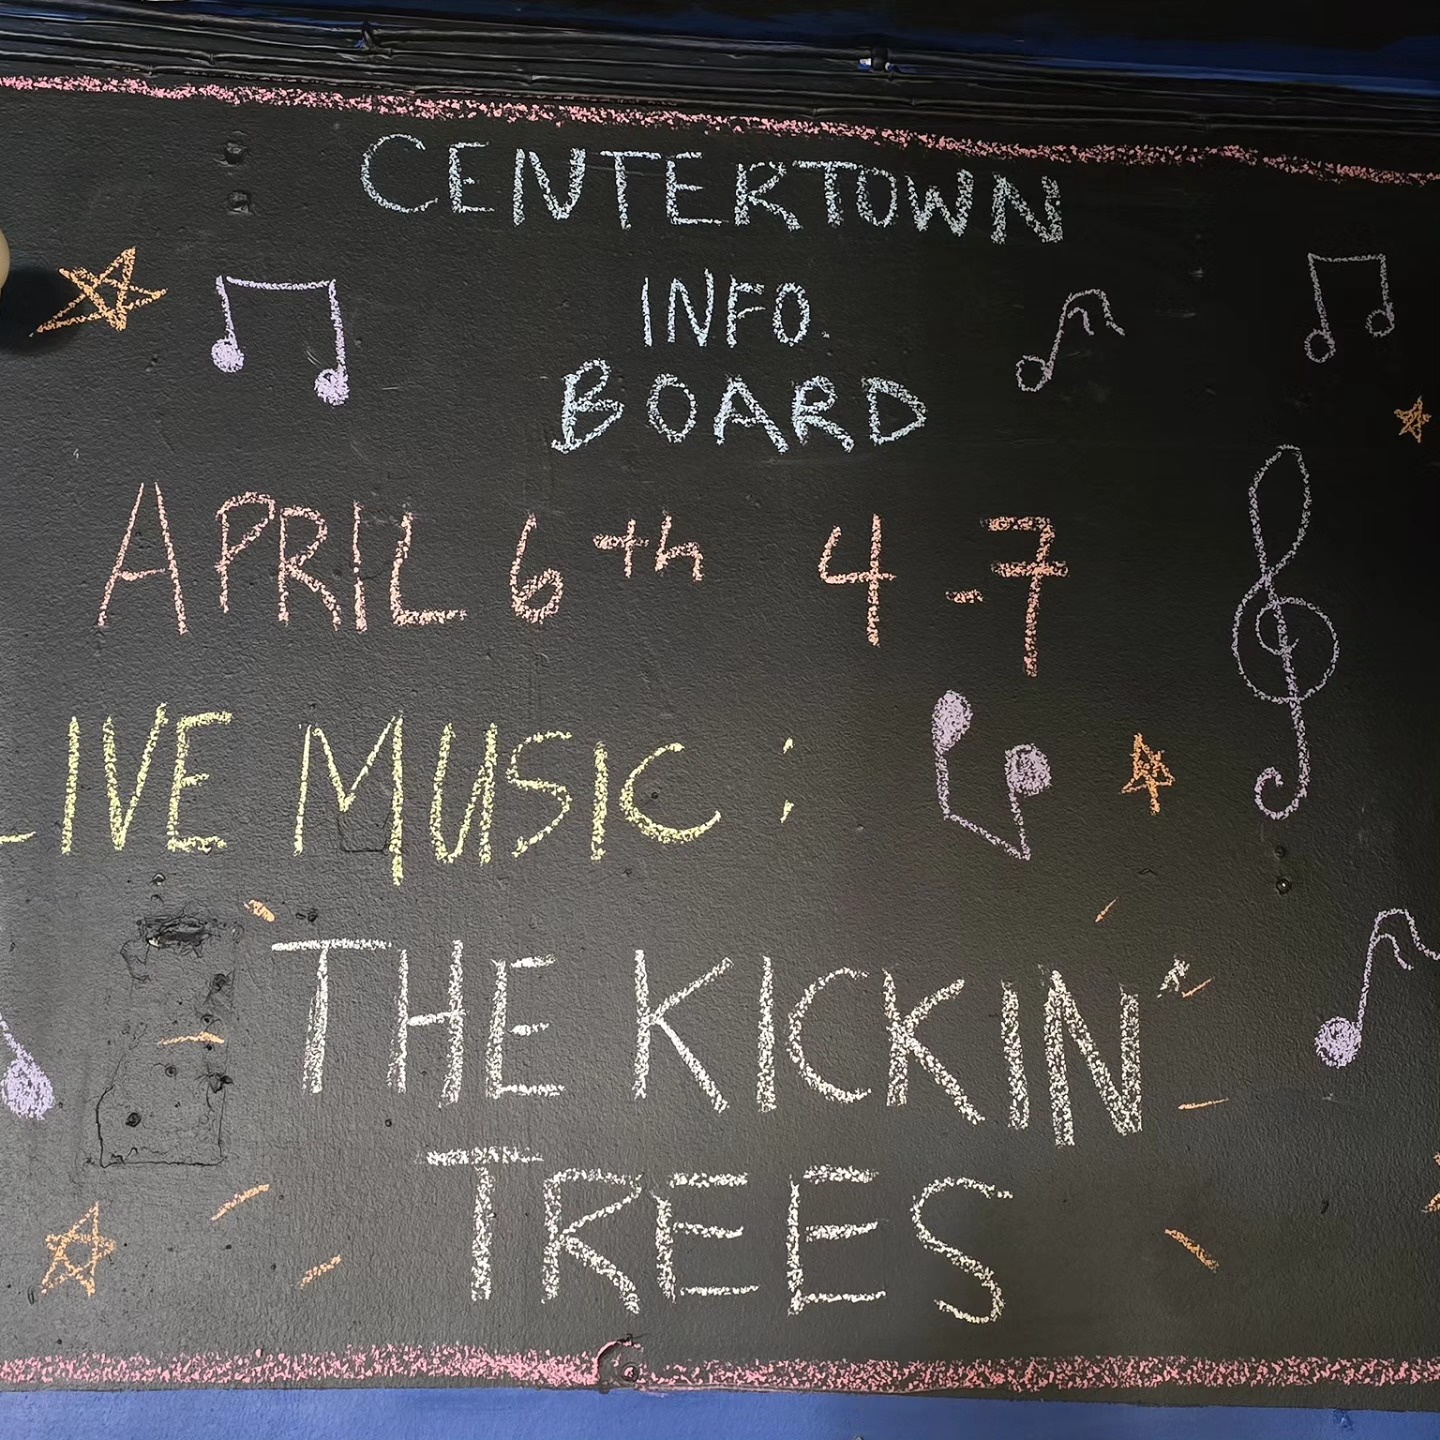 CENTERTOWN
INFO.
BOARD
APRIL 6th 4-7
LIVE MUSIC:
THE KICKIN'
TREES